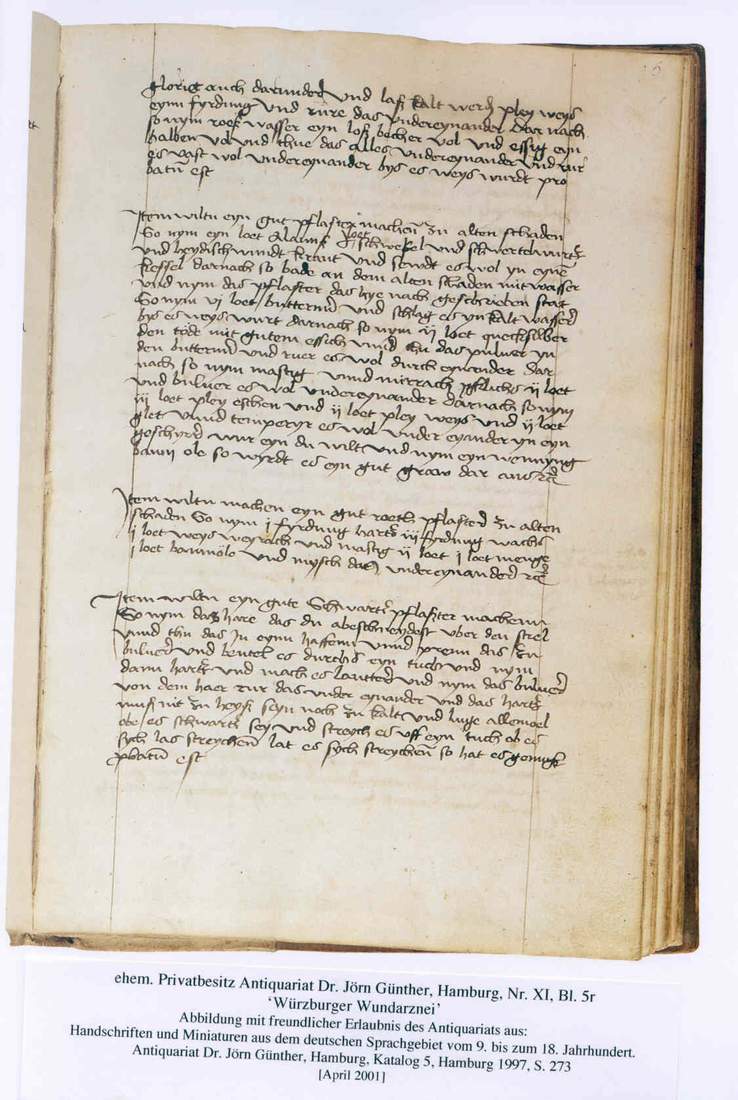 glorig auch darunder vnd lass kalt werd pley weys
eynn fyrdung vnd rure das vndereynander dar nach
so nym roess wasser eyn loss becher vol vnd essig eyn
halben vol vnd thue das alles vndereynander vnd rur
es vast wol vndereynander bys es weys wurdt pro
batu est
Item wiltu eyn gut pflaster machen zu alten schaden
So nym eyn loet Alauns loet schwebel vnd schwertelwurtz
vnd heydisch wundt kraut vnd sewdt es wol yn eyne
kessel darnach so bade an dem alten schaden mit wasser
vnd nym dis pflaster das hye nach geschrieben stat
So nym vj loet butternn vnd schlag es yn kalt wasser
bys es weys wurt darnach so nym ij loet quecksilber
den tode mit gutem essich vnnd thu das puluer yn
den butternn vnd ruer es wol durch eynander dar
nach so nym mastig vnnd mirrach ytzlichs ij loet
vnd buluer es wol vndereynander darnach so nym
iij loet pley eschen vnd ij loet pley weys vnd ij loet
glet vnnd temperyr es wol vnder eyander yn eyn
geschyrr wur eyn du wilt vnd nym eyn wennyng
baum ole so wyrdt es eyn gut graw dar aus
Item wiltu machen eyn gut roeth pflaster zu alten
schaden So nym j fyrdung hartz iij fyrdung wachs
j loet weys weyrach vnd mastig ij loet j loet menge
j loet bommole vnd mysch das vndereynander
Item wiltu eyn gute Schwartz pflaster machenn
So nym das hare das du abeschneydest vber den strel
vnnd thu das Jn eynn haffenn vnnd prenn das zu
buluer vnd beutel es durchs eyn tuch vnd nym
dann hartz vnd mach es lautter vnd nym das buluer
von dem haer rur das vnder eynander vnd das hartz
muss nit zu heyss seyn noch zu kalt vnd luge allemoel
obe es schwartz sey vnd streych es vff eyn tuch ob es
sych las streychen lat es sych streychen so hat es genugk
pbatu est
ehem. Privatbesitz Antiquariat Dr. Jörn Günther, Hamburg, Nr. XI, Bl. 5r
‘Würzburger Wundarznei’
Abbildung mit freundlicher Erlaubnis des Antiquariats aus:
Handschriften und Miniaturen aus dem deutschen Sprachgebiet vom 9. bis zum 18. Jahrhundert.
Antiquariat Dr. Jörn Günther, Hamburg, Katalog 5, Hamburg 1997, S. 273
[April 2001]